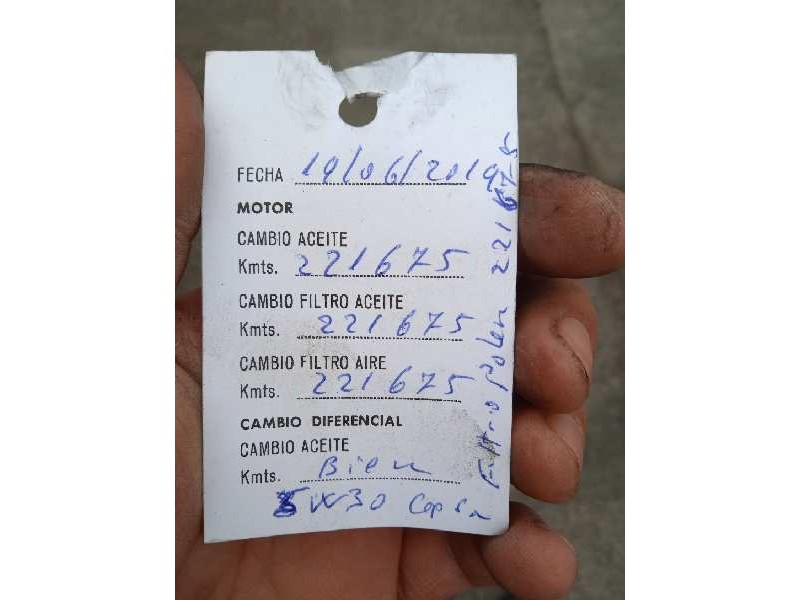 FECHA 19/06/2019
MOTOR
CAMBIO ACEITE
Kmts. 221675
CAMBIO FILTRO ACEITE
Kmts. 221675
CAMBIO FILTRO AIRE
Kmts. 221675
CAMBIO DIFERENCIAL
CAMBIO ACEITE
Kmts. Bien
5W30
Filtro polen 221675